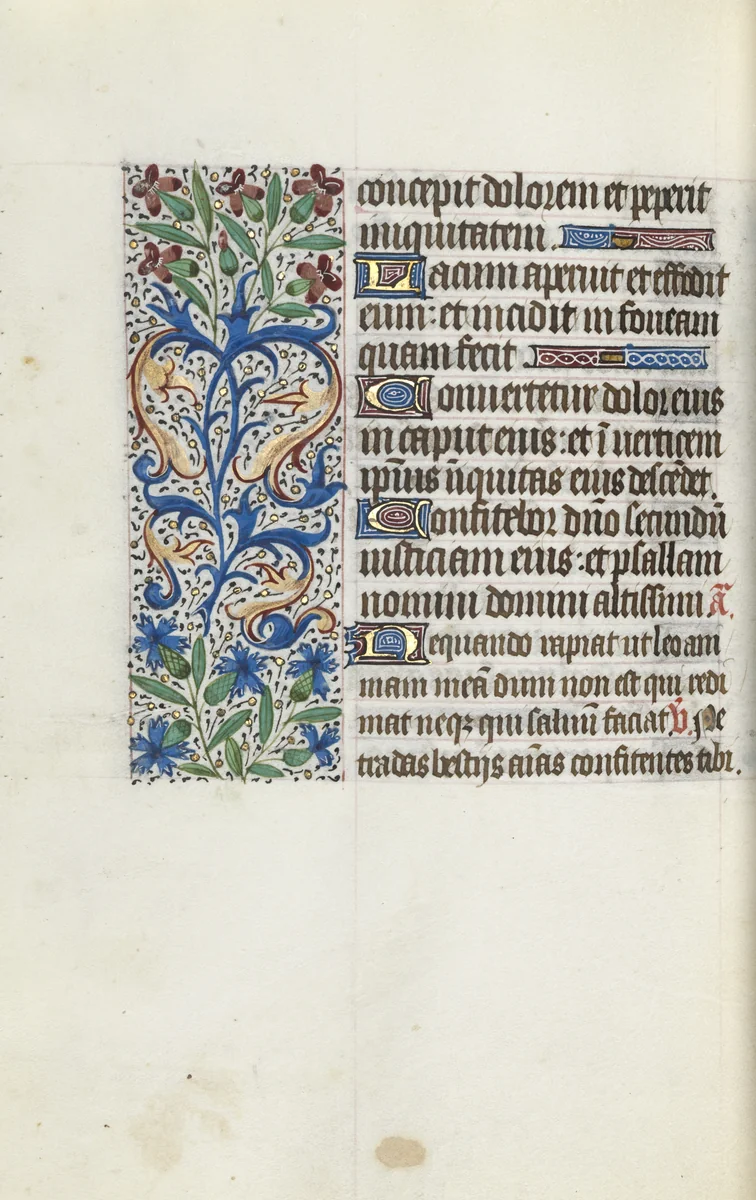 concepit dolorem et peperit
iniquitatem.
Lacum aperuit et effodit
eum: et incidit in foueam
quam fecit.
Conuertetur dolor eius
in caput eius: et ī uerticem
ip̄ius īiquitas eius descēdet.
Confitebor dn̄o secundū
iusticiam eius: et psallam
nomini domini altissimi a͞.
Nequando rapiat ut leo am
mam meā dum non est qui redi
mat neqꝫ qui saluū faciat. v̄. Ne
tradas bestijs aīas confitentes tibi.